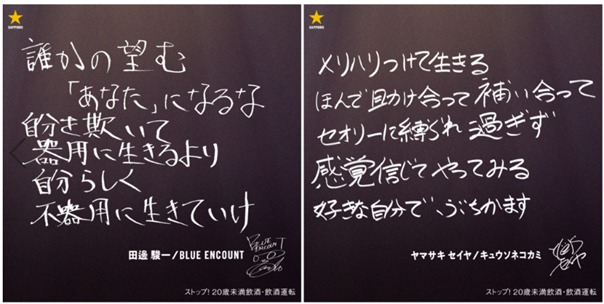 SAPPORO
誰かの望む
「あなた」になるな
自分を欺いて
器用に生きるより
自分らしく
不器用に生きていけ
田邊 駿一/BLUE ENCOUNT
BLUE ENCOUNT
ストップ! 20歳未満飲酒・飲酒運転
SAPPORO
メリハリつけて生きる
ほんで助け合って補い合って
セオリーに縛られ過ぎず
感覚信じてやってみる
好きな自分で、ぶちかます
ヤマサキ セイヤ/キュウソネコカミ
セイヤ
ストップ! 20歳未満飲酒・飲酒運転